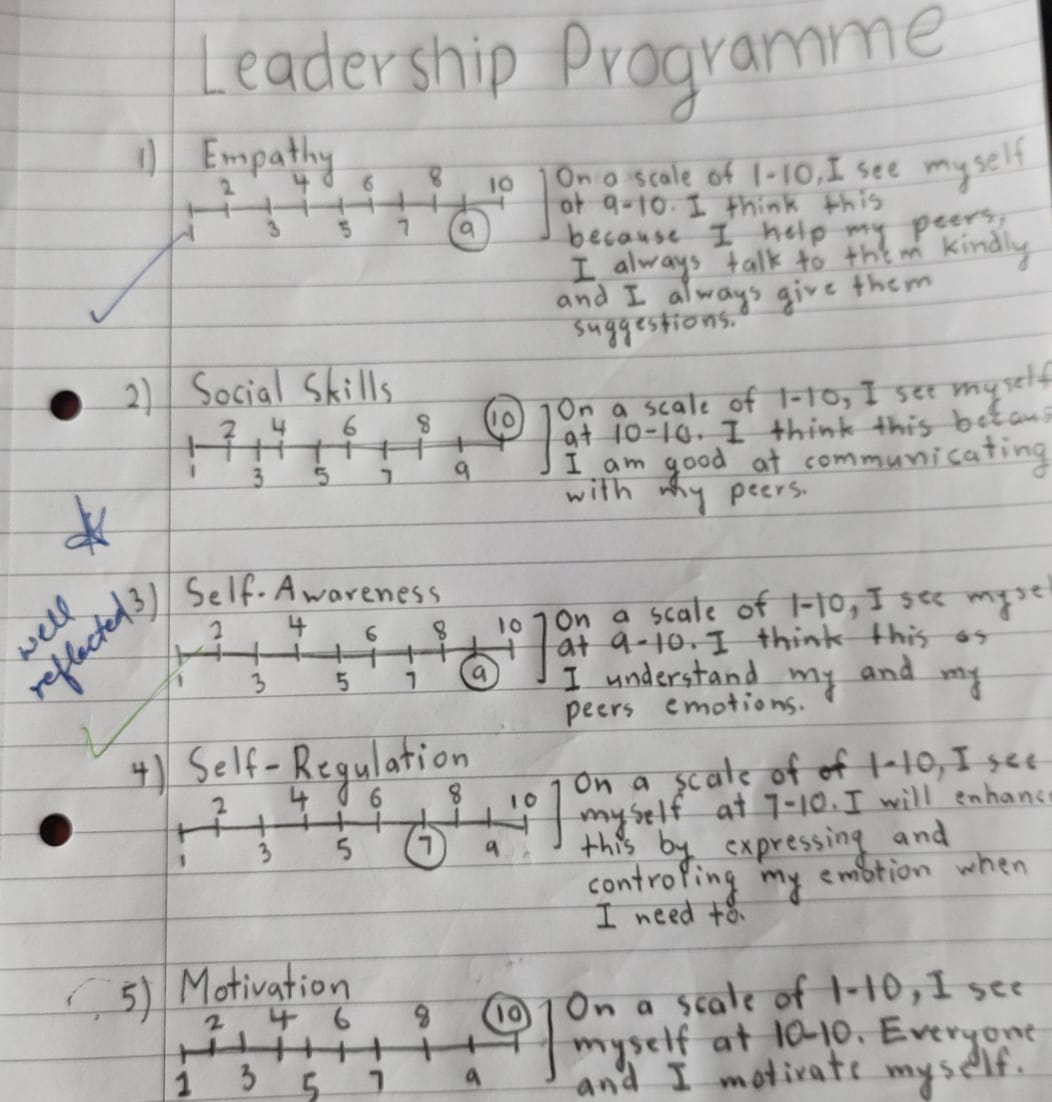 Leadership Programme
1) Empathy
2 4 6 8 10
1 3 5 7 9
On a scale of 1-10, I see myself
at 9-10. I think this
because I help my peers,
I always talk to them kindly
and I always give them
suggestions.
2) Social Skills
2 4 6 8 10
1 3 5 7 9
On a scale of 1-10, I see myself
at 10-10. I think this becaus
I am good at communicating
with my peers.
well
reflected
3) Self-Awareness
2 4 6 8 10
1 3 5 7 9
On a scale of 1-10, I see mysel
at 9-10. I think this as
I understand my and my
peers emotions.
4) Self-Regulation
2 4 6 8 10
1 3 5 7 9
On a scale of of 1-10, I see
myself at 7-10. I will enhance
this by expressing and
controling my emotion when
I need to.
5) Motivation
2 4 6 8 10
1 3 5 7 9
On a scale of 1-10, I see
myself at 10-10. Everyone
and I motivate myself.